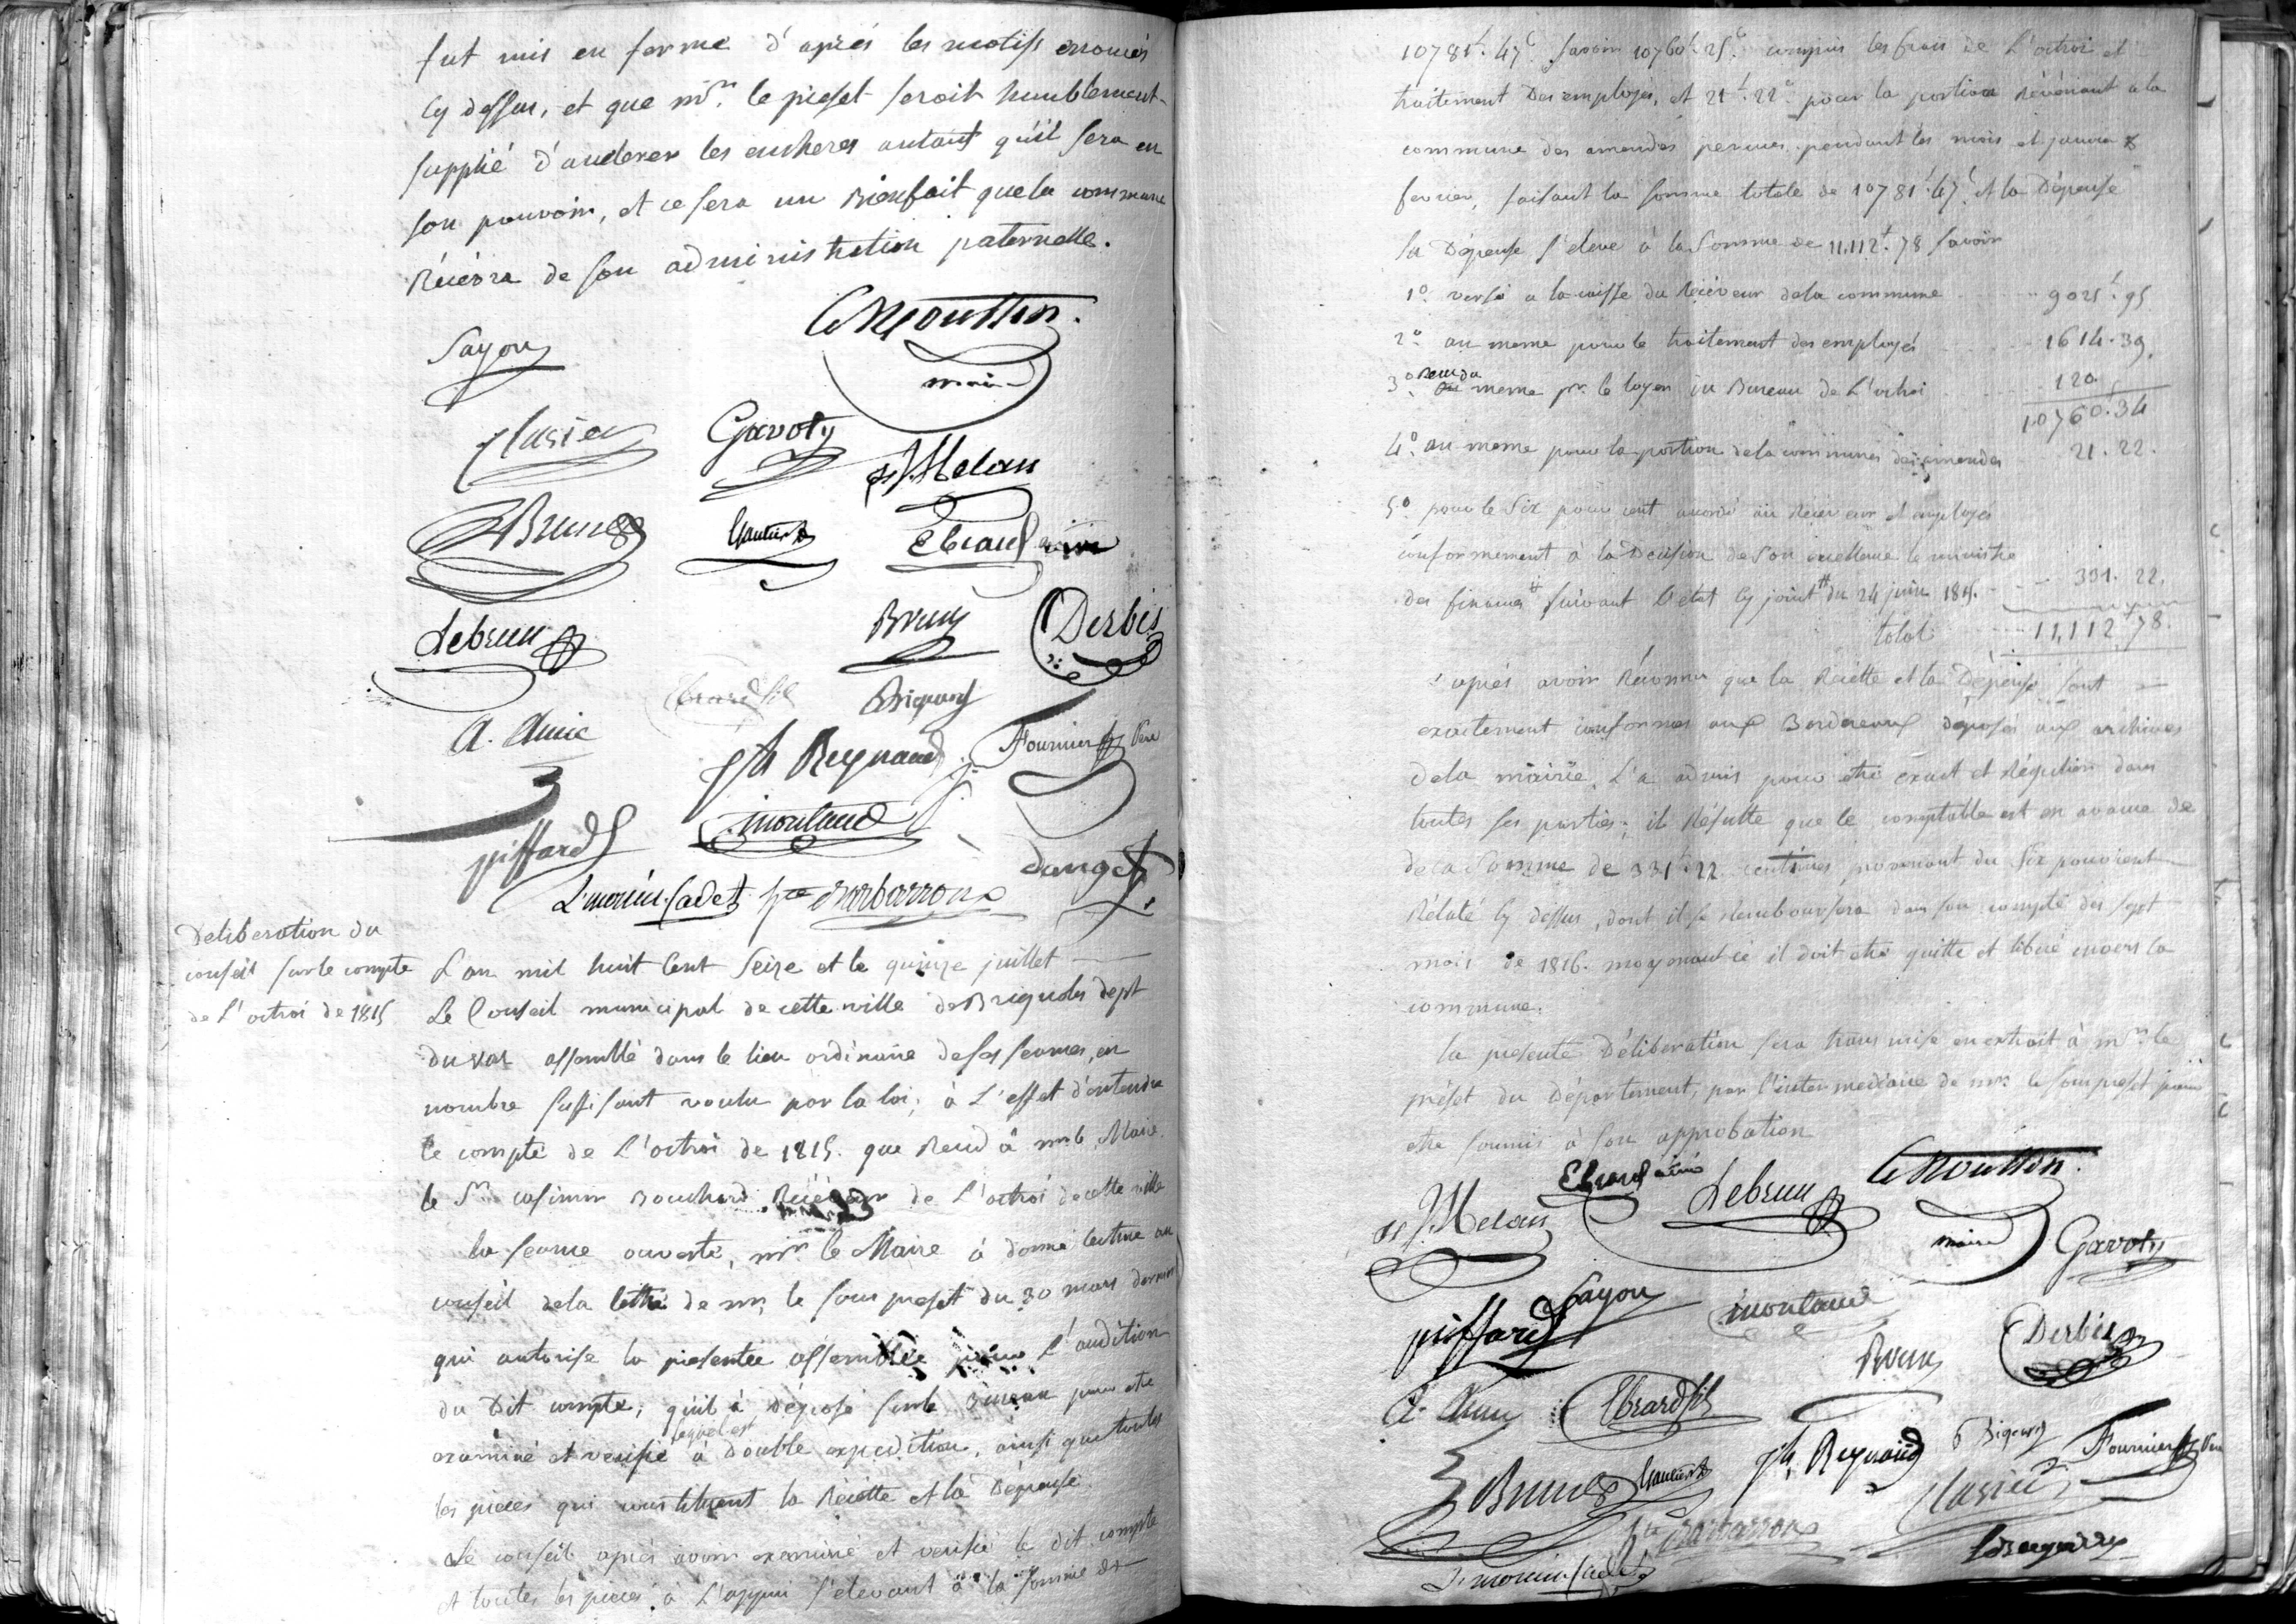 fut mis en ferme d'après les motifs enoncés
cy dessus, et que mr. le prefet seroit humblement
supplié d'accelerer les encheres autant qu'il sera en
son pouvoir, et ce sera un Bienfait que la commune
Récévra de son administration paternelle.
Lemouttin.
maire
Sayou
Gavoty
J. Melan
Brun
Gautier
Ebrard ainé
Lebrun
Brun
Derbès
Ebrard fils
A. Amic
Jh Reynaud
Fournier
piffard
moulard
L. monin Cadet
Barbarroux
Deliberation du
conseil sur le compte
de L'octroi de 1815
L'an mil huit cent Seize et le quinze juillet
Le Conseil municipal de cette ville de Brignoles dept
du var assemblé dans le lieu ordinaire de ses seances, en
nombre suffisant voulu par la loi; à L'effet d'entendre
le compte de L'octroi de 1815. que Rend à mr. le Maire
le Sr casimir Bouchard Récéveur de L'octroi de cette ville
la seance ouverte, mr. le Maire à donné lecture au
conseil de la lettre de mr. le sous prefet du 30 mars dernier
qui autorise la presente assemblée pour L'audition
du Dit compte; qu'il à Déposé sur le Bureau pour etre
examiné et verifié lequel est à double expedition, ainsi que toutes
les pieces qui constituent la Récétte et la Dépense.
Le conseil après avoir examiné et verifié le dit compte
et toutes les pieces à L'appui s'elevant à la somme de
10781f. 47c. savoir 10760f. 25c. compris les frais de L'octroi et
traitement Des employés, et 21f. 22c. pour la portion Révénant a la
commune des amendes percues pendant les mois de janvier &
fevrier, faisant la somme totale de 10781f. 47c. et la Dépense
La Dépense s'eleve à la Somme de 11,112f. 78 savoir
1o. versé a la caisse du Récéveur de la commune 9025f. 95
2o. au meme pour le traitement des employés 1614. 39.
3o. au meme pr. le loyer du Bureau de L'octroi 120
10760. 34
4o. au meme pour la portion de la commune des amendes 21. 22.
5o. pour le Six pour cent accordé au Récéveur et employés
conformement à la Décision de Son excellence le ministre
des finances suivant l'etat cy joint du 24 juin 1815. 331. 22.
total 11,112f 78.
après avoir Réconnu que la Récétte et la Dépense sont
exactement conformes aux Bordereaux déposés aux archives
de la mairie, L'a admis pour etre exact et Régulier dans
toutes ses parties; il Résulte que le comptable est en avance de
de la Somme de 331f. 22 centimes, provenant du Six pour cent
Rélaté cy dessus, dont il se Rembourséra dans son compte des sept
mois de 1816. moyenant ce il doit etre quitte et libéré envers la
commune.
la presente Déliberation sera transmise en extrait à mr. le
préfet du Département, par l'intermediaire de mr. le sous prefet pour
etre soumis à son approbation
Ebrard ainé
Lebrun
Lemouttin.
maire
J. Melan
Gavoty
Sayou
piffard
moulard
Derbès
Brun
A. Amic
Ebrard fils
Jh Reynaud
Fournier
Brun
Gautier
Barbarroux
L. monin Cadet